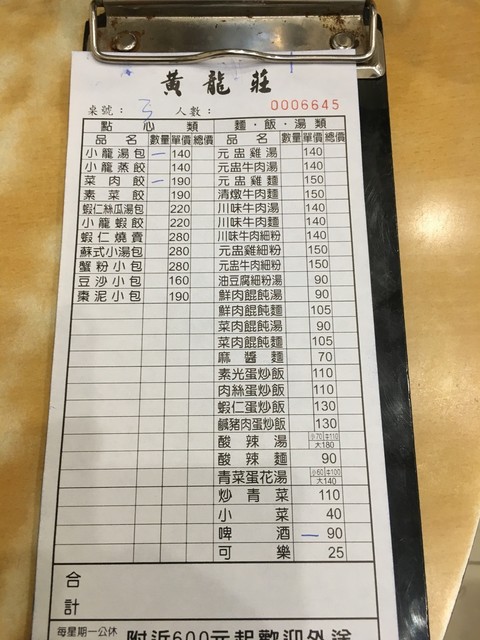 黃龍莊
桌號： 3 人數： 0006645
點心類 麵·飯·湯類
品名 數量 單價 總價 品名 數量 單價 總價
小龍湯包 一 140 元盅雞湯 140
小龍蒸餃 140 元盅牛肉湯 140
菜肉餃 一 190 元盅雞麵 150
素菜餃 190 清燉牛肉麵 150
蝦仁絲瓜湯包 220 川味牛肉湯 140
小龍蝦餃 220 川味牛肉麵 150
蝦仁燒賣 280 川味牛肉細粉 140
蘇式小湯包 280 元盅雞細粉 150
蟹粉小包 280 元盅牛肉細粉 150
豆沙小包 160 油豆腐細粉湯 90
棗泥小包 190 鮮肉餛飩湯 90
鮮肉餛飩麵 105
菜肉餛飩湯 90
菜肉餛飩麵 105
麻醬麵 70
素光蛋炒飯 110
肉絲蛋炒飯 110
蝦仁蛋炒飯 130
鹹豬肉蛋炒飯 130
酸辣湯 小70 中110 大180
酸辣麵 90
青菜蛋花湯 小60 中100 大140
炒青菜 110
小菜 40
啤酒 一 90
可樂 25
合計
每星期一公休 附近600元起歡迎外送